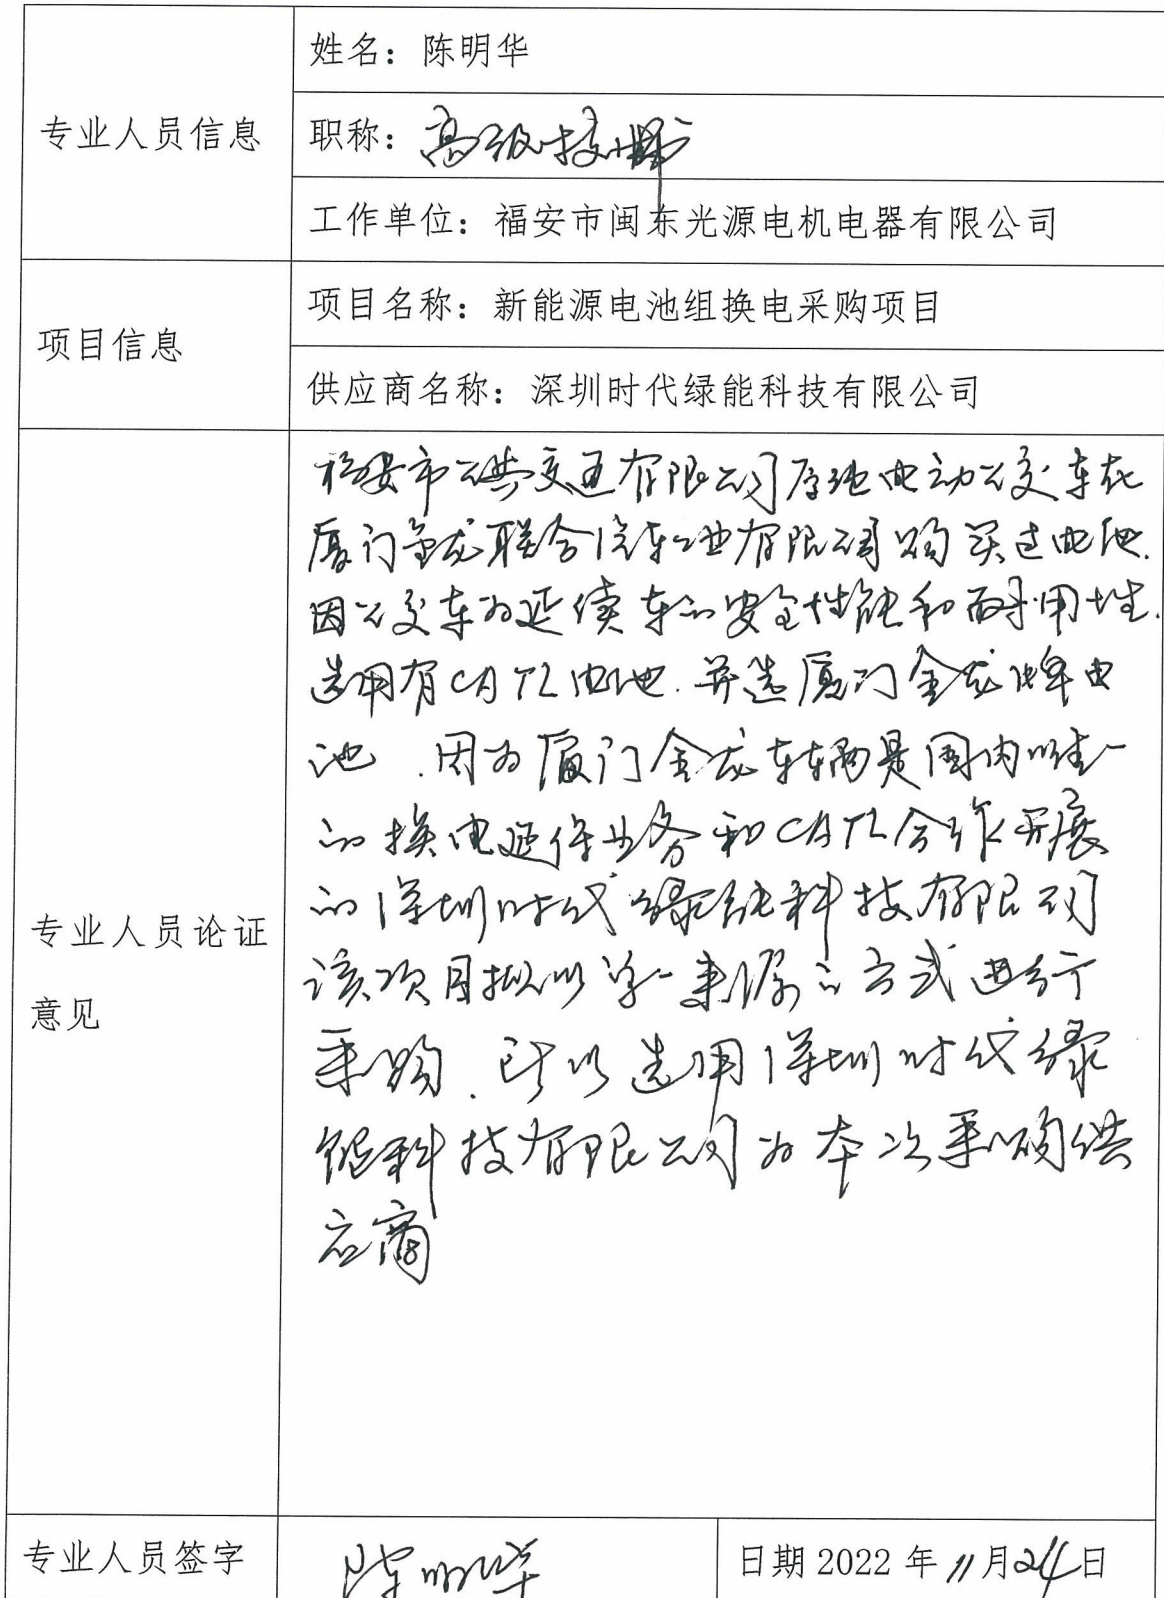 姓名：陈明华
专业人员信息
职称：高级技师
工作单位：福安市闽东光源电机电器有限公司
项目信息
项目名称：新能源电池组换电采购项目
供应商名称：深圳时代绿能科技有限公司
专业人员论证
意见
福安市公共交通有限公司原纯电动公交车在
厦门金龙联合汽车工业有限公司购买过电池.
因公交车为延续车的安全性能和耐用性.
选用有CATL电池.并选厦门金龙 电
池.因为厦门金龙车辆是国内唯一
的换电延保业务和CATL合作开展
的深圳时代绿能科技有限公司
该项目拟以单一来源的方式进行
采购.所以选用深圳时代绿
能科技有限公司为本次采购供
应商
专业人员签字 陈明华 日期 2022 年 11 月 24 日